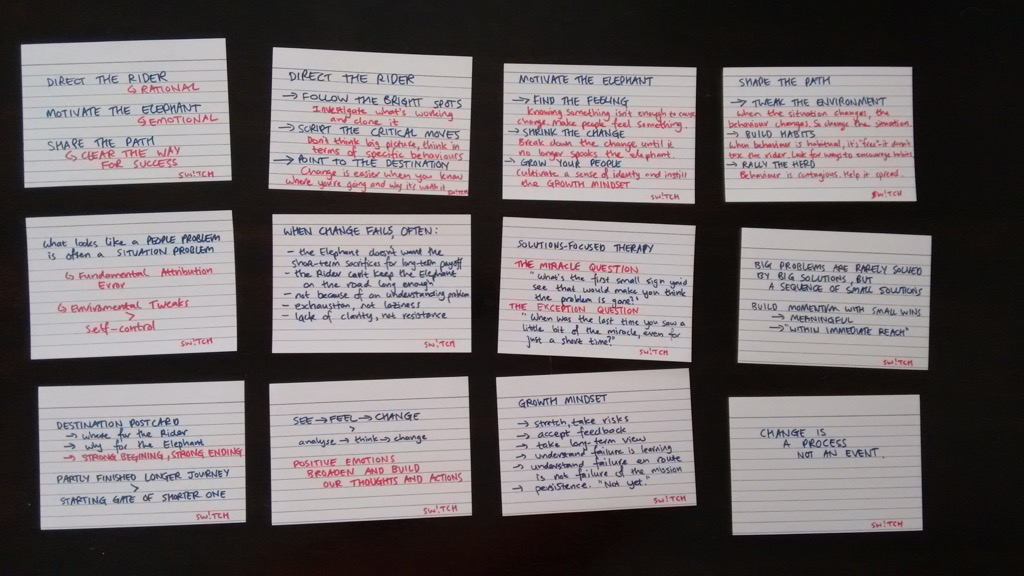 DIRECT THE RIDER
↳ RATIONAL
MOTIVATE THE ELEPHANT
↳ EMOTIONAL
SHAPE THE PATH
↳ CLEAR THE WAY
FOR SUCCESS
SW!TCH
DIRECT THE RIDER
→ FOLLOW THE BRIGHT SPOTS
Investigate what's working
and clone it
→ SCRIPT THE CRITICAL MOVES
Don't think big picture, think in
terms of specific behaviours
→ POINT TO THE DESTINATION
Change is easier when you know
where you're going and why it's worth it
SW!TCH
MOTIVATE THE ELEPHANT
→ FIND THE FEELING
Knowing something isn't enough to cause
change. Make people feel something.
→ SHRINK THE CHANGE
Break down the change until it
no longer spooks the elephant.
→ GROW YOUR PEOPLE
Cultivate a sense of identity and instill
the GROWTH MINDSET
SW!TCH
SHAPE THE PATH
→ TWEAK THE ENVIRONMENT
When the situation changes, the
behaviour changes. So change the situation.
→ BUILD HABITS
When behaviour is habitual, it's "free" it doesn't
tax the rider. Look for ways to encourage habits.
→ RALLY THE HERD
Behaviour is contagious. Help it spread.
SW!TCH
What looks like a PEOPLE PROBLEM
is often a SITUATION PROBLEM
↳ Fundamental Attribution
Error
↳ Enviromental Tweaks
>
Self-control
SW!TCH
WHEN CHANGE FAILS, OFTEN:
- the Elephant doesn't want the
short-term sacrifices for long-term payoff
- the Rider can't keep the Elephant
on the road long enough
- not because of an understanding problem
- exhaustion, not laziness
- lack of clarity, not resistance
SW!TCH
SOLUTIONS-FOCUSED THERAPY
THE MIRACLE QUESTION
"What's the first small sign you'd
see that would make you think
the problem is gone?"
THE EXCEPTION QUESTION
"When was the last time you saw a
little bit of the miracle, even for
just a short time?"
SW!TCH
BIG PROBLEMS ARE RARELY SOLVED
BY BIG SOLUTIONS, BUT
A SEQUENCE OF SMALL SOLUTIONS
BUILD MOMENTUM WITH SMALL WINS
→ MEANINGFUL
→ "WITHIN IMMEDIATE REACH"
SW!TCH
DESTINATION POSTCARD
→ Where for the Rider
→ Why for the Elephant
→ STRONG BEGINING, STRONG ENDING
PARTLY FINISHED LONGER JOURNEY
>
STARTING GATE OF SHORTER ONE
SW!TCH
SEE → FEEL → CHANGE
>
analyse → think → change
POSITIVE EMOTIONS
BROADEN AND BUILD
OUR THOUGHTS AND ACTIONS
SW!TCH
GROWTH MINDSET
→ stretch, take risks
→ accept feedback
→ take long-term view
→ understand failure is learning
→ understand failure en route
is not failure of the mission
→ persistence. "Not yet."
SW!TCH
CHANGE IS
A PROCESS
NOT AN EVENT.
SW!TCH